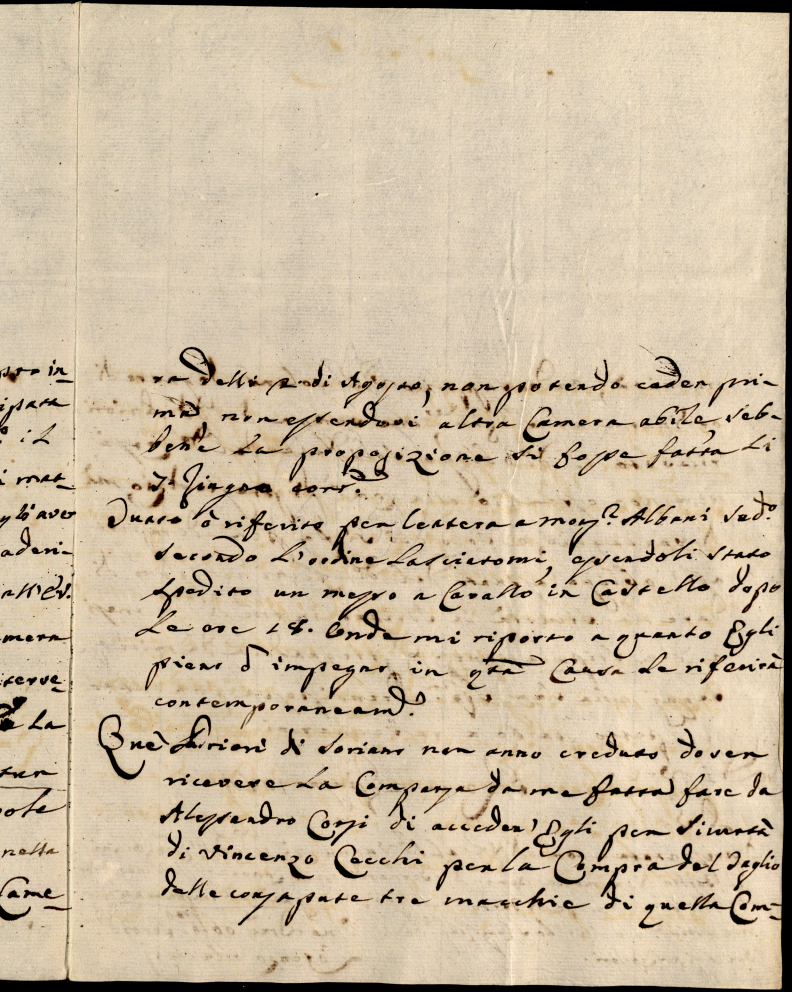 pro in_
ipata
il
i mat_
aderi_
mera
la
nella
Came_
ra delli 2 di Agosto, non potendo cader pri-
ma non essendovi altra Camera abile seb-
bene la proposizione si fosse fatta li
7. Giugno corr.e
Tanto ò riferito per lettera a mons.r Albani Sed.o
secondo l'ordine lasciatomi, essendoli stato
spedito un messo a Cavallo in Castello dopo
le ore 18. Onde mi riporto a quanto Egli
pieno d'impegno in qta Causa le riferirà
contemporaneam.e
Que' Priori di Soriano non anno creduto dover
ricevere la Comparsa da me fatta fare da
Alessandro Corsi di acceder' Egli per Sicurtà
di Vincenzo Cecchi per la Compra del Taglio
delle consapute tre macchie di quella Com-